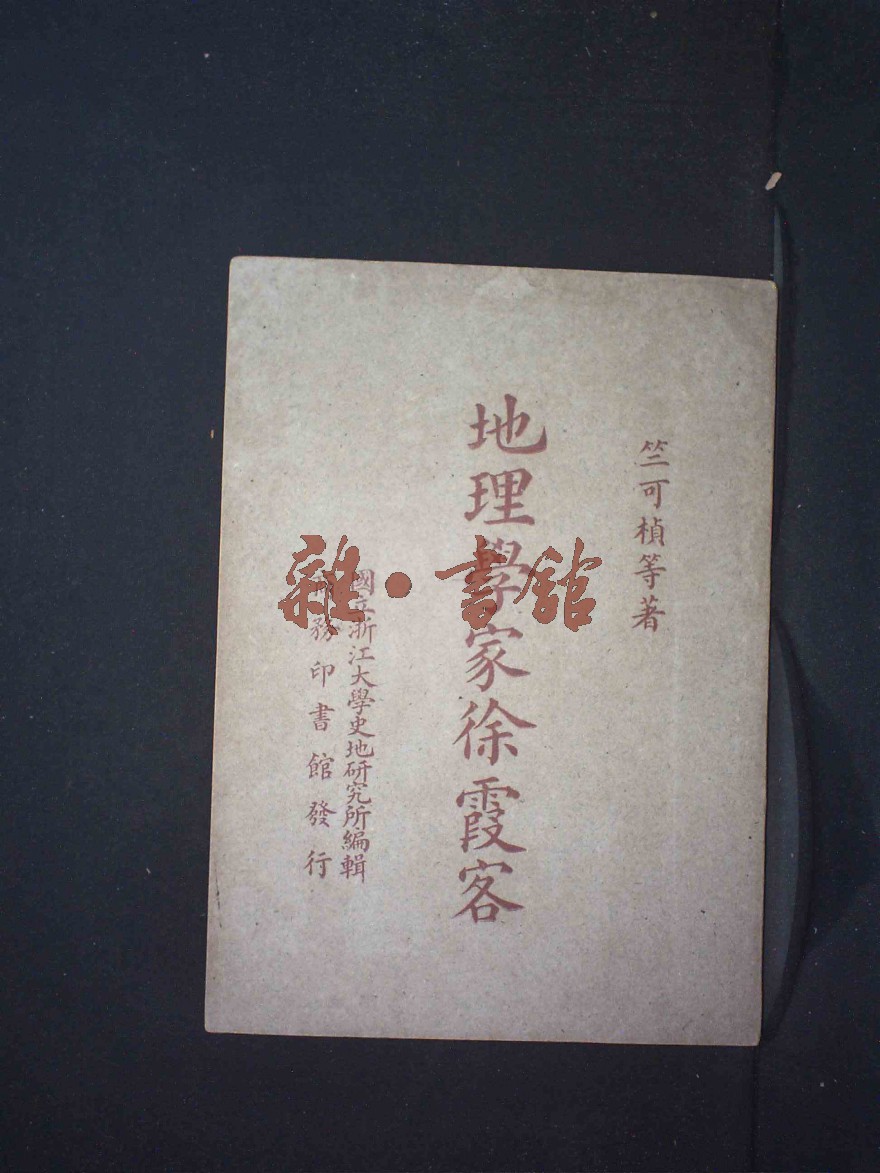 竺可楨等著
地理學家徐霞客
國立浙江大學史地研究所編輯
商務印書館發行
雜·書館